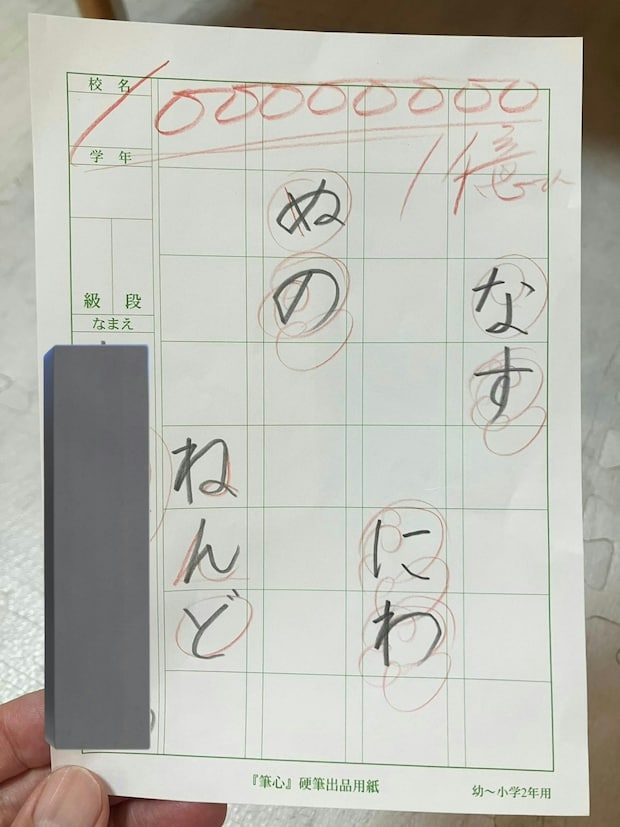 校名
学年
級 段
なまえ
100000000
1億
なす
にわ
ぬの
ねんど
『筆心』硬筆出品用紙
幼〜小学2年用